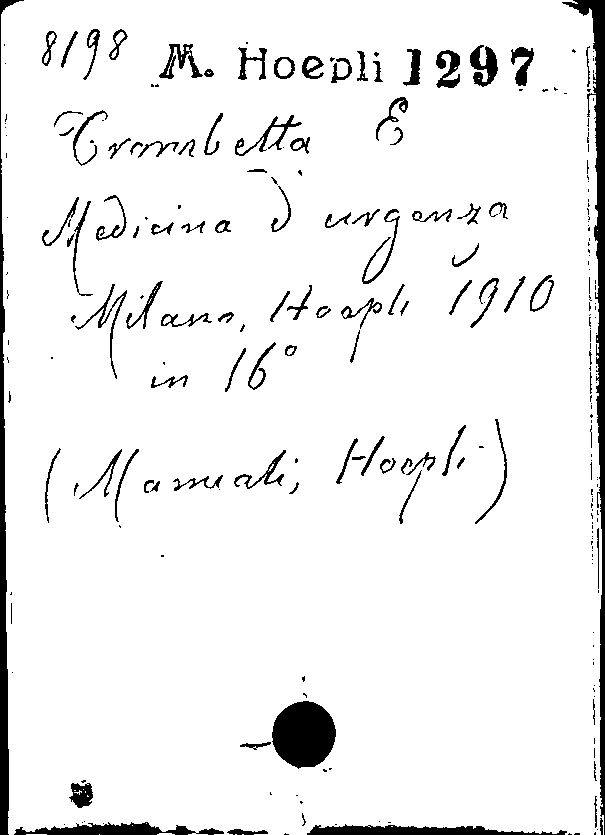 8198 M. Hoepli 1297
Trombetta E
Medicina d'urgenza
Milano, Hoepli 1910
in 16°
(Manuali, Hoepli)